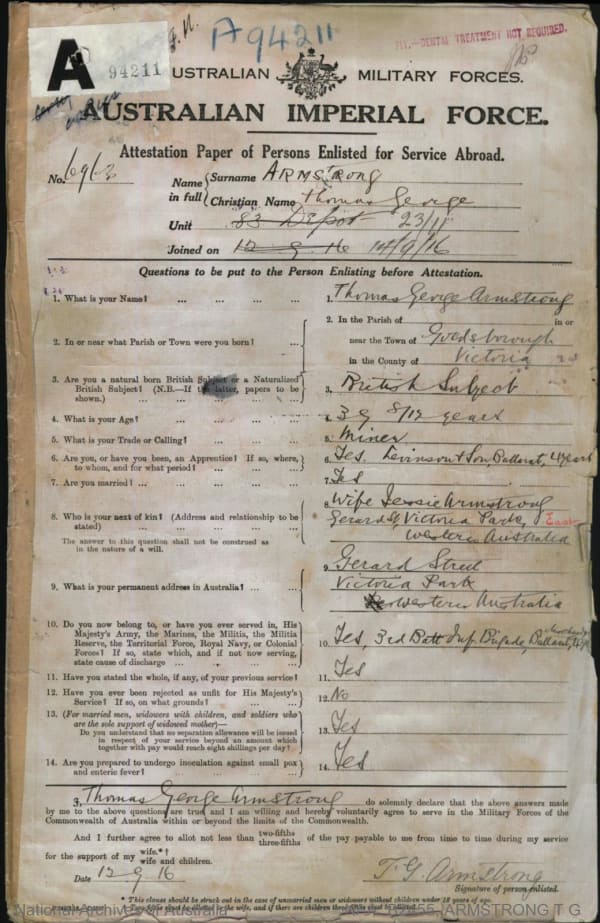 A94211
FIT.—DENTAL TREATMENT NOT REQUIRED.
A 94211
AUSTRALIAN MILITARY FORCES.
AUSTRALIAN IMPERIAL FORCE.
Attestation Paper of Persons Enlisted for Service Abroad.
No. 6963
Name in full { Surname ARMSTRONG
Christian Name Thomas George
Unit 83 Depot 23/11
Joined on 12 9 16 14/9/16
Questions to be put to the Person Enlisting before Attestation.
1. What is your Name? ... ... ... ... 1. Thomas George Armstrong
2. In or near what Parish or Town were you born? ... ... 2. In the Parish of in or
near the Town of Goldsborough
in the County of Victoria
3. Are you a natural born British Subject or a Naturalized British Subject? (N.B.—If the latter, papers to be shown.) ... ... ... ... 3. British Subject
4. What is your Age? ... ... ... ... 4. 39 8/12 years
5. What is your Trade or Calling? ... ... ... 5. Miner
6. Are you, or have you been, an Apprentice? If so, where, to whom, and for what period? ... ... ... 6. Yes. Levinson & Son, Ballarat, 4 years
7. Are you married? ... ... ... ... 7. Yes
8. Who is your next of kin? (Address and relationship to be stated) ... ... ... ... 8. Wife Jessie Armstrong
Gerard St Victoria Park, East
Western Australia
The answer to this question shall not be construed as in the nature of a will.
9. What is your permanent address in Australia? ... ... 9. Gerard Street
Victoria Park
Western Australia
10. Do you now belong to, or have you ever served in, His Majesty's Army, the Marines, the Militia, the Militia Reserve, the Territorial Force, Royal Navy, or Colonial Forces? If so, state which, and if not now serving, state cause of discharge ... ... ... 10. Yes, 3rd Batt Inf Brigade, Ballarat,
11. Have you stated the whole, if any, of your previous service? 11. Yes
12. Have you ever been rejected as unfit for His Majesty's Service? If so, on what grounds? ... ... 12. No
13. (For married men, widowers with children, and soldiers who are the sole support of widowed mother)—
Do you understand that no separation allowance will be issued in respect of your service beyond an amount which together with pay would reach eight shillings per day? 13. Yes
14. Are you prepared to undergo inoculation against small pox and enteric fever? ... ... ... ... 14. Yes
I, Thomas George Armstrong do solemnly declare that the above answers made
by me to the above questions are true, and I am willing and hereby voluntarily agree to serve in the Military Forces of the
Commonwealth of Australia within or beyond the limits of the Commonwealth.
And I further agree to allot not less than two-fifths three-fifths of the pay payable to me from time to time during my service
for the support of my wife.*† wife and children.
Date 12 9 16 T. G. Armstrong
Signature of person enlisted.
* This clause should be struck out in the case of unmarried men or widowers without children under 18 years of age.
National Archives of Australia
ARMSTRONG T G